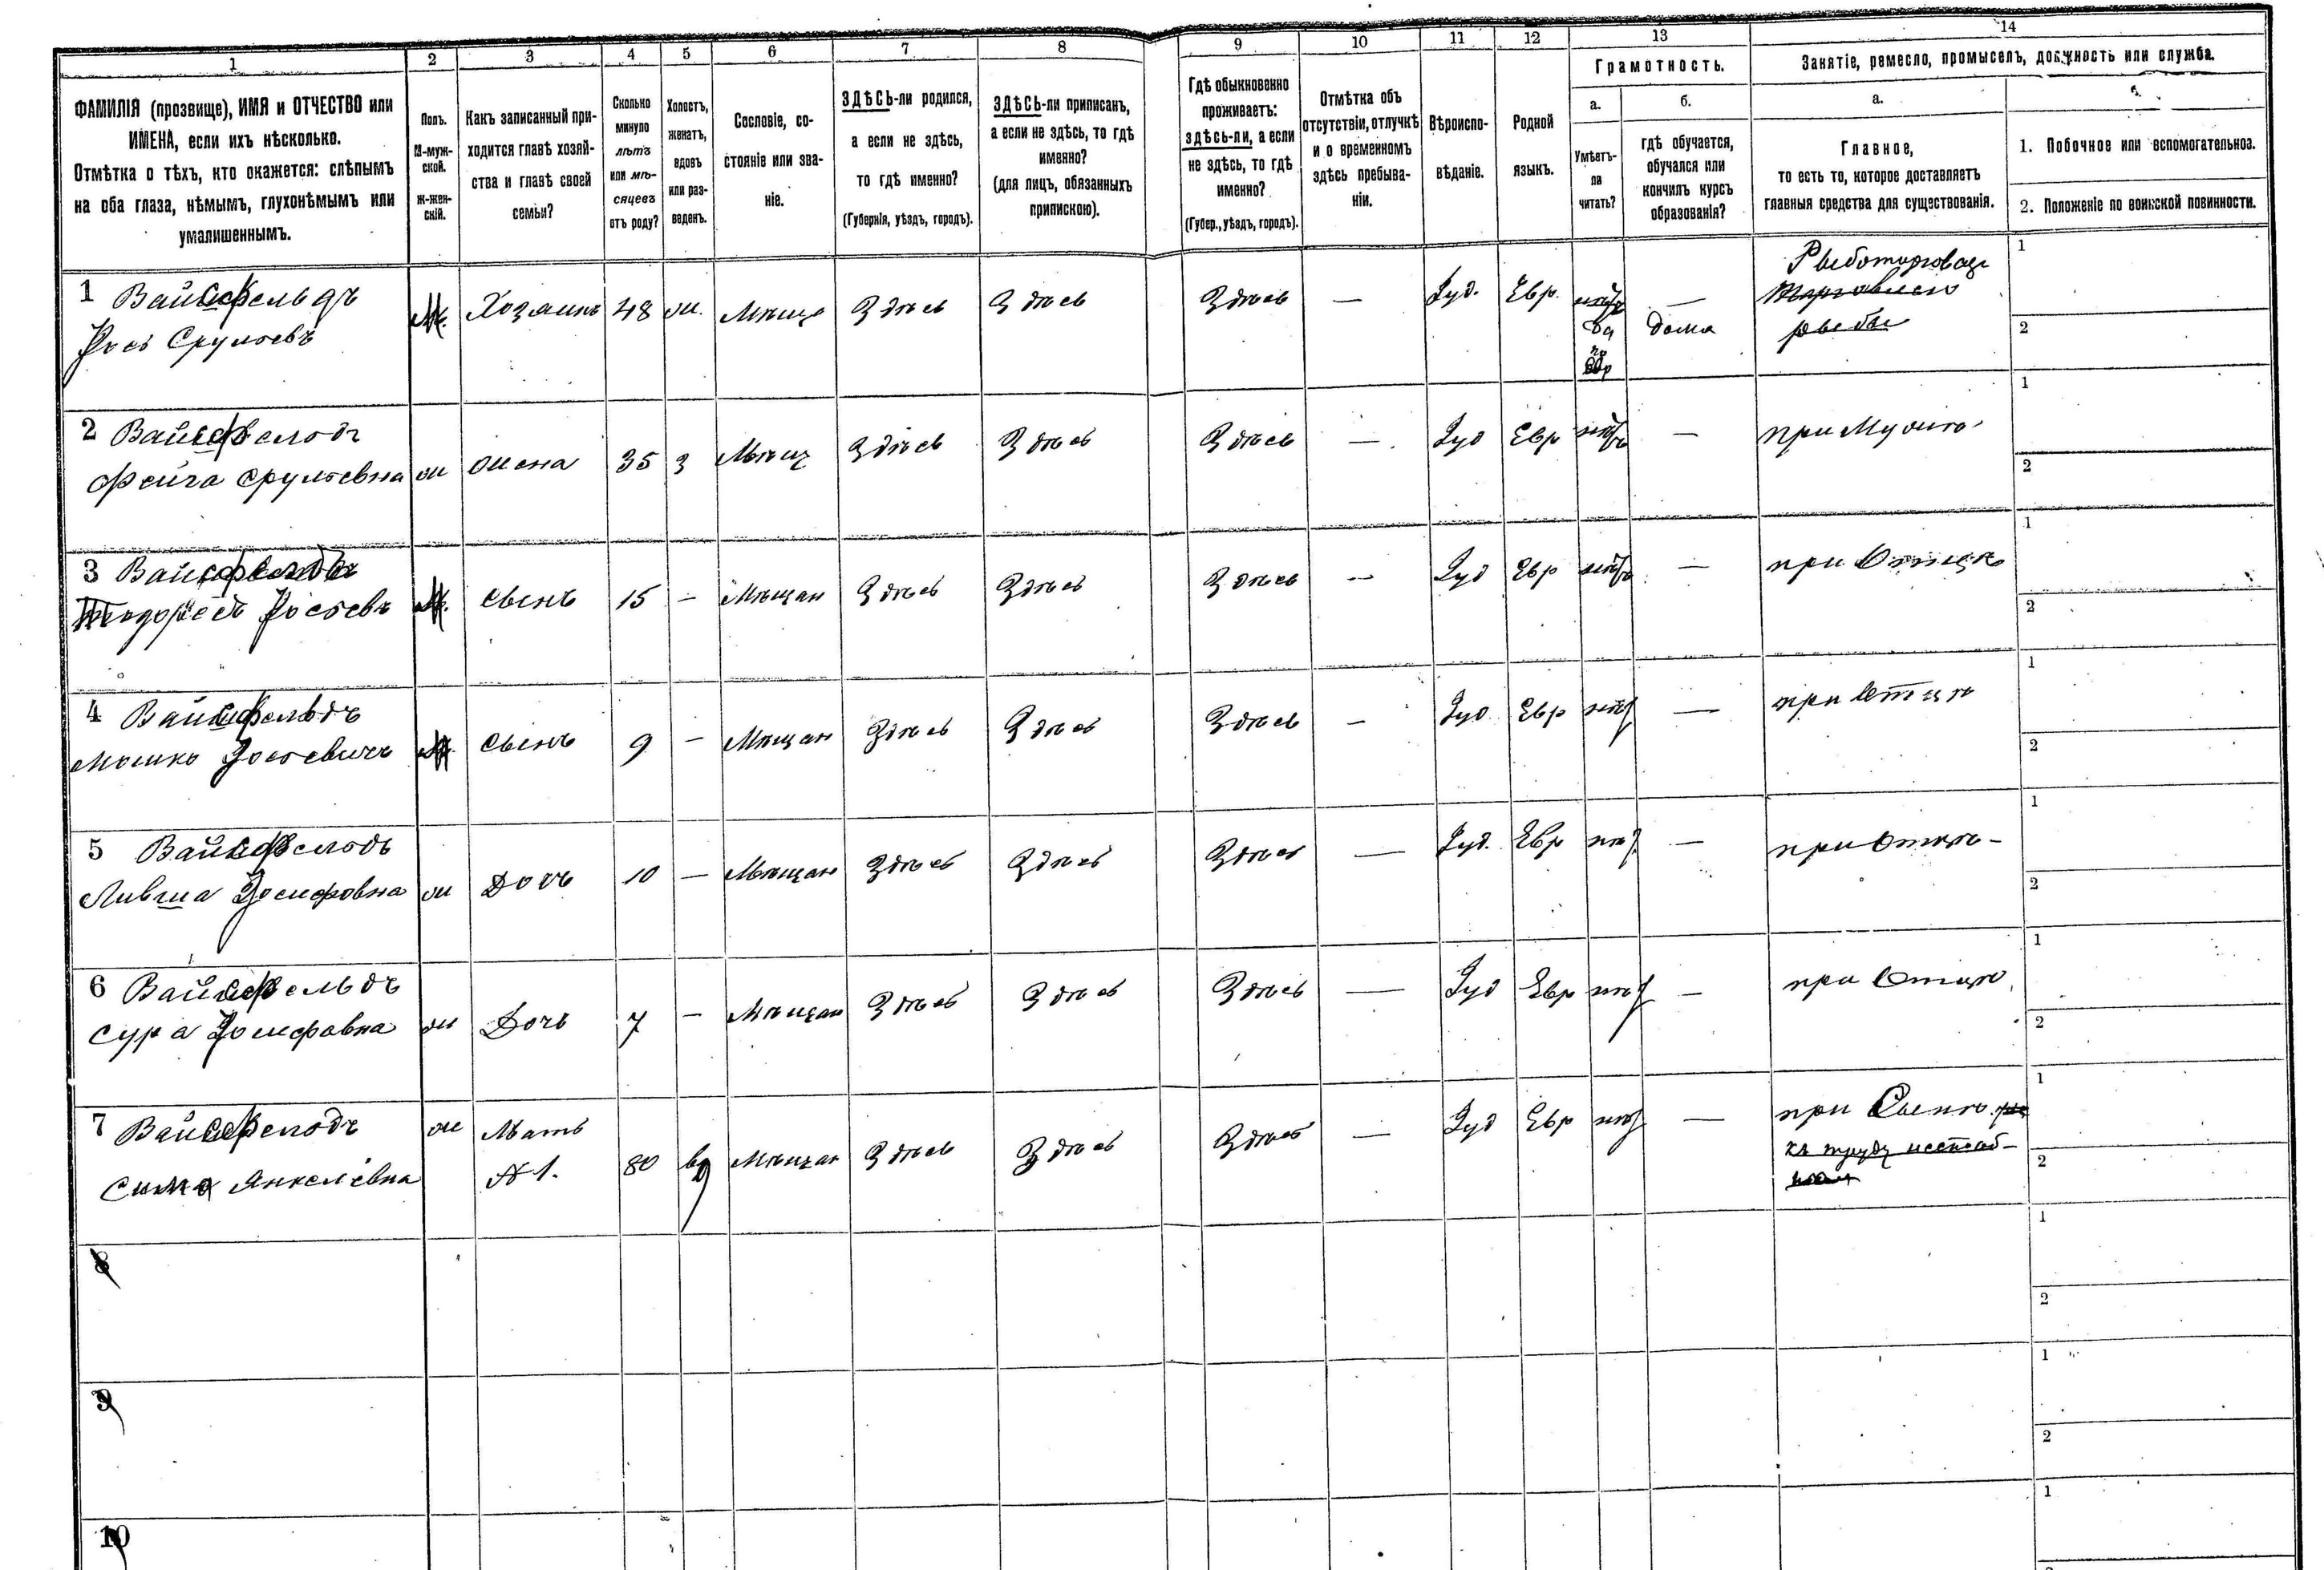 1 2 3 4 5 6 7 8 9 10 11 12 13 14
ФАМИЛІЯ (прозвище), ИМЯ и ОТЧЕСТВО или
ИМЕНА, если ихъ нѣсколько.
Отмѣтка о тѣхъ, кто окажется: слѣпымъ
на оба глаза, нѣмымъ, глухонѣмымъ или
умалишеннымъ.
Полъ.
М-муж-
ской.
Ж-жен-
скій.
Какъ записанный при-
ходится главѣ хозяй-
ства и главѣ своей
семьи?
Сколько
минуло
лѣтъ
или мѣ-
сяцевъ
отъ роду?
Холостъ,
женатъ,
вдовъ
или раз-
веденъ.
Сословіе, со-
стояніе или зва-
ніе.
ЗДѢСЬ-ли родился,
а если не здѣсь,
то гдѣ именно?
(Губернія, уѣздъ, городъ).
ЗДѢСЬ-ли приписанъ,
а если не здѣсь, то гдѣ
именно?
(для лицъ, обязанныхъ
припискою).
Гдѣ обыкновенно
проживаетъ:
здѣсь-ли, а если
не здѣсь, то гдѣ
именно?
(Губер., уѣздъ, городъ).
Отмѣтка объ
отсутствіи, отлучкѣ
и о временномъ
здѣсь пребыва-
ніи.
Вѣроиспо-
вѣданіе.
Родной
языкъ.
Грамотность.
а.
Умѣетъ-
ли
читать?
б.
гдѣ обучается,
обучался или
кончилъ курсъ
образованія?
Занятіе, ремесло, промыселъ, должность или служба.
а.
Главное,
то есть то, которое доставляетъ
главныя средства для существованія.
б.
1. Побочное или вспомогательное.
2. Положеніе по воинской повинности.
1 Вайсфельдъ М. Хозяинъ 48 ж. Мѣща Здѣсь Здѣсь Здѣсь — Іуд. Евр. нѣтъ — 1
Срульевъ да дома рыбы 2
2 Вайсфельдъ
Фейга Срульевна ж жена 35 з Мѣщ Здѣсь Здѣсь Здѣсь — Іуд Евр нѣтъ — при Мужѣ 1
2
3 Вайсфельдъ
М. сынъ 15 — Мѣщан Здѣсь Здѣсь Здѣсь — Іуд Евр нѣтъ — при Отцѣ 1
2
4 Вайсфельдъ
Мошко М. сынъ 9 — Мѣщан Здѣсь Здѣсь Здѣсь — Іуд Евр нѣт — при Отцѣ 1
2
5 Вайсфельдъ
Ливша Іосифовна ж Дочь 10 — Мѣщан Здѣсь Здѣсь Здѣсь — Іуд. Евр нѣт — при Отцѣ 1
2
6 Вайсфельдъ
Сура Іосифовна ж Дочь 7 — Мѣщан Здѣсь Здѣсь Здѣсь — Іуд Евр нѣт — при Отцѣ 1
2
7 Вайсфельдъ ж Мать
Сима Янкелевна № 1. 80 вд Мѣщан Здѣсь Здѣсь Здѣсь — Іуд Евр нѣт — при Сынѣ 1
къ труду 2
8 1
2
9 1
2
10 1